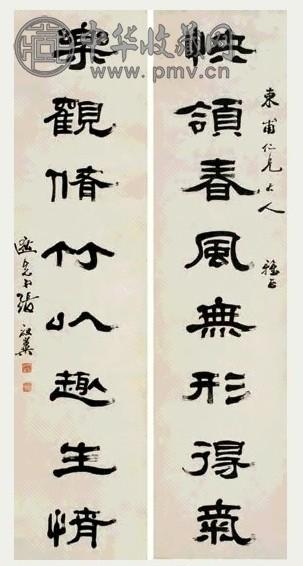 中华收藏网
www.pmv.cn
東甫仁兄大人
雅正
快領春風無形得氣
樂觀脩竹以趣生情
逖先弟張祖翼